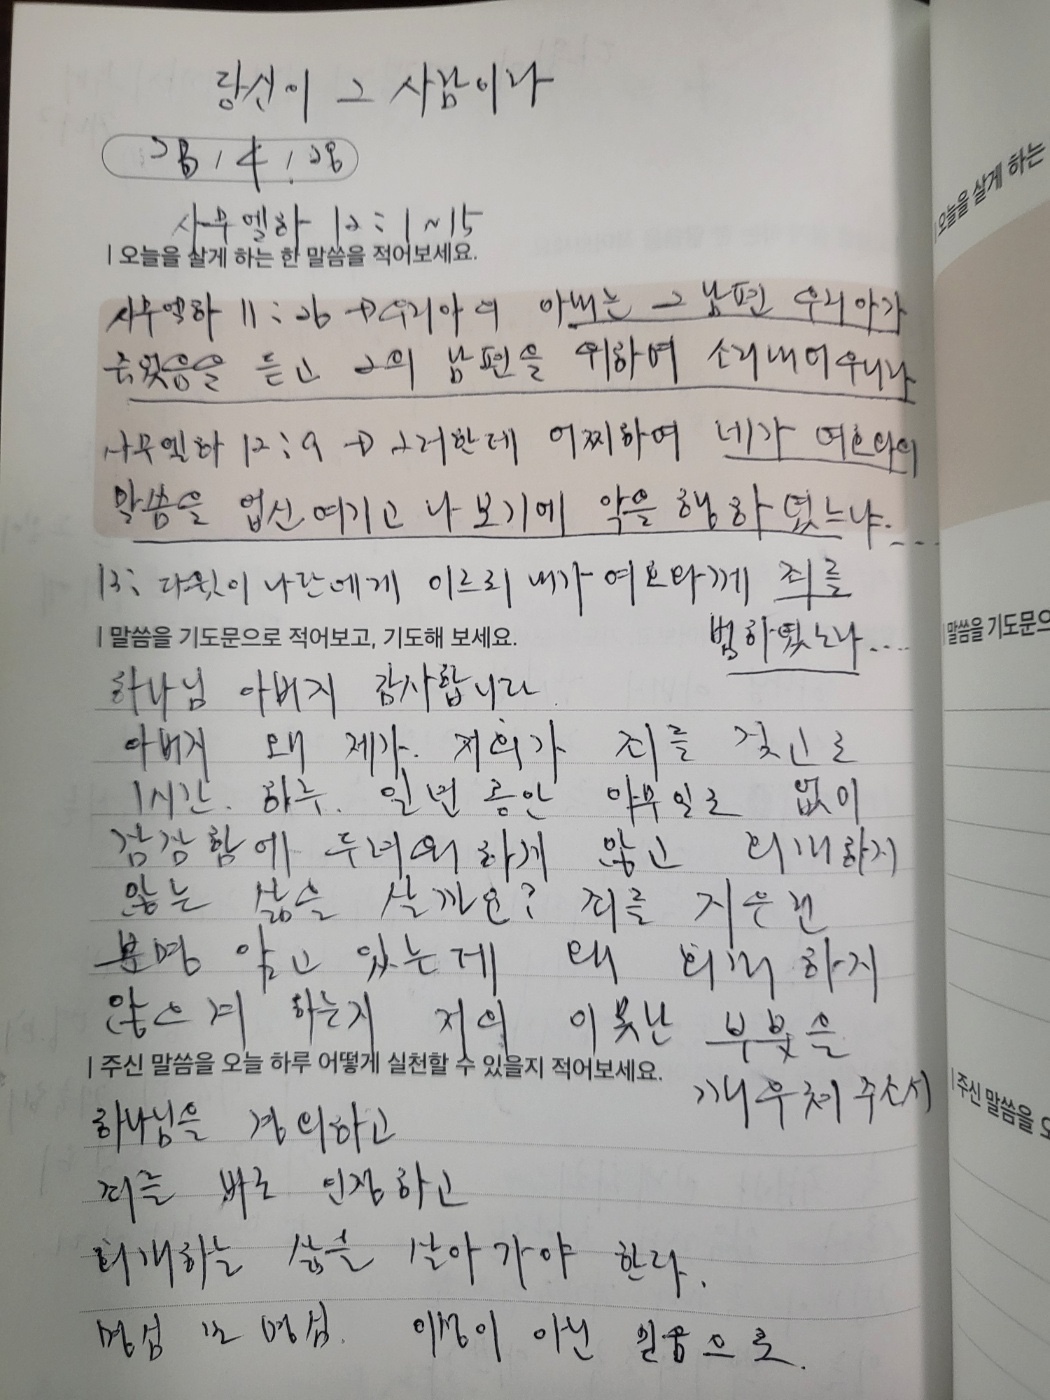 당신이 그 사람이라
23/4/28
사무엘하 12:1~15
| 오늘을 살게 하는 한 말씀을 적어보세요.
사무엘하 11:26 → 우리아의 아내는 그 남편 우리아가
죽었음을 듣고 그의 남편을 위하여 소리내어우니라
사무엘하 12:9 → 그러한데 어찌하여 네가 여호와의
말씀을 업신 여기고 나 보기에 악을 행하였느냐....
13: 다윗이 나단에게 이르되 내가 여호와께 죄를
범하였노라....
| 말씀을 기도문으로 적어보고, 기도해 보세요.
하나님 아버지 감사합니다.
아버지 왜 제가. 저희가 죄를 짓고도
1시간. 하루. 일년 동안 아무일도 없이
잠잠함에 두려워하게 않고 회개하지
않는 삶을 살까요? 죄를 지은건
분명 알고 있는데 왜 회개하지
않으려 하는지 저의 이 못난 부분을
깨우쳐 주소서
| 주신 말씀을 오늘 하루 어떻게 실천할 수 있을지 적어보세요.
하나님을 경외하고
죄를 바로 인정하고
회개하는 삶을 살아가야 한다.
명심 또 명심. 이성이 아닌 믿음으로.
| 오늘을 살게 하는
| 말씀을 기도문으
| 주신 말씀을 오